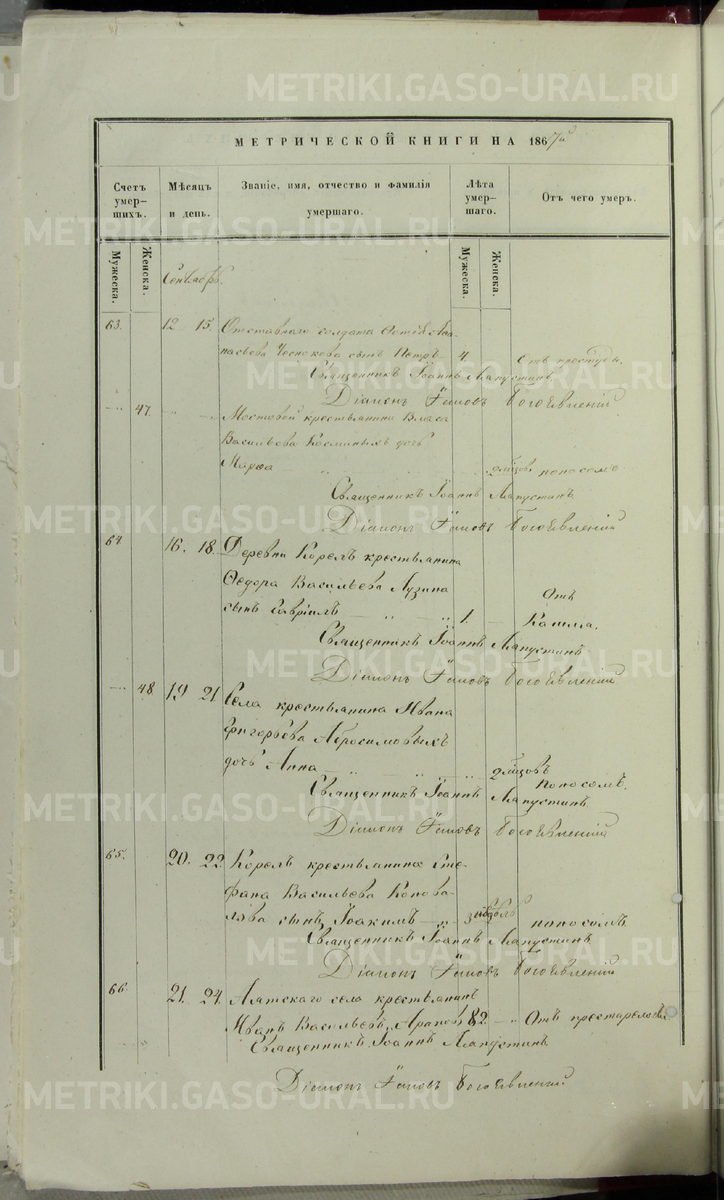 МЕТРИЧЕСКОЙ КНИГИ НА 1867й
Счетъ умершихъ. Мѣсяцъ и день. Званіе, имя, отчество и фамилія умершаго. Лѣта умершаго. Отъ чего умеръ.
Мужеска. Женска. Мужеска. Женска.
Сентябрь.
63. 12 15. Отставнаго солдата
насьева Чеснокова сынъ Петръ 4 Отъ простуды.
Священникъ Іоаннъ Лапустинъ
Діаконъ Богоявленскій
47. Мостовой крестьянина Власа
Васильева Косминыхъ дочь
Марѳа поносомъ
Священникъ Іоаннъ Лапустинъ
Діаконъ Богоявленскій
64 16. 18. Деревни Корелъ крестьянина
Ѳедора Васильева Лузина Отъ
сынъ Гавріилъ 1. Кашля.
Священникъ Іоаннъ Лапустинъ
Діаконъ Богоявленскій
48 19 21 Села крестьянина Ивана
Григорьева Абросимовыхъ
дочь Анна поносомъ.
Священникъ Іоаннъ Лапустинъ
Діаконъ Богоявленскій
65. 20. 22. Корелъ крестьянина Сте
фана Васильева Конова
лова сынъ Іоакимъ поносомъ
Священникъ Іоаннъ Лапустинъ
Діаконъ Богоявленскій
66 21. 24. Аятскаго села крестьянинъ
Иванъ Васильевъ Араповъ 82 Отъ престарелости
Священникъ Іоаннъ Лапустинъ
Діаконъ Богоявленскій
METRIKI.GASO-URAL.RU